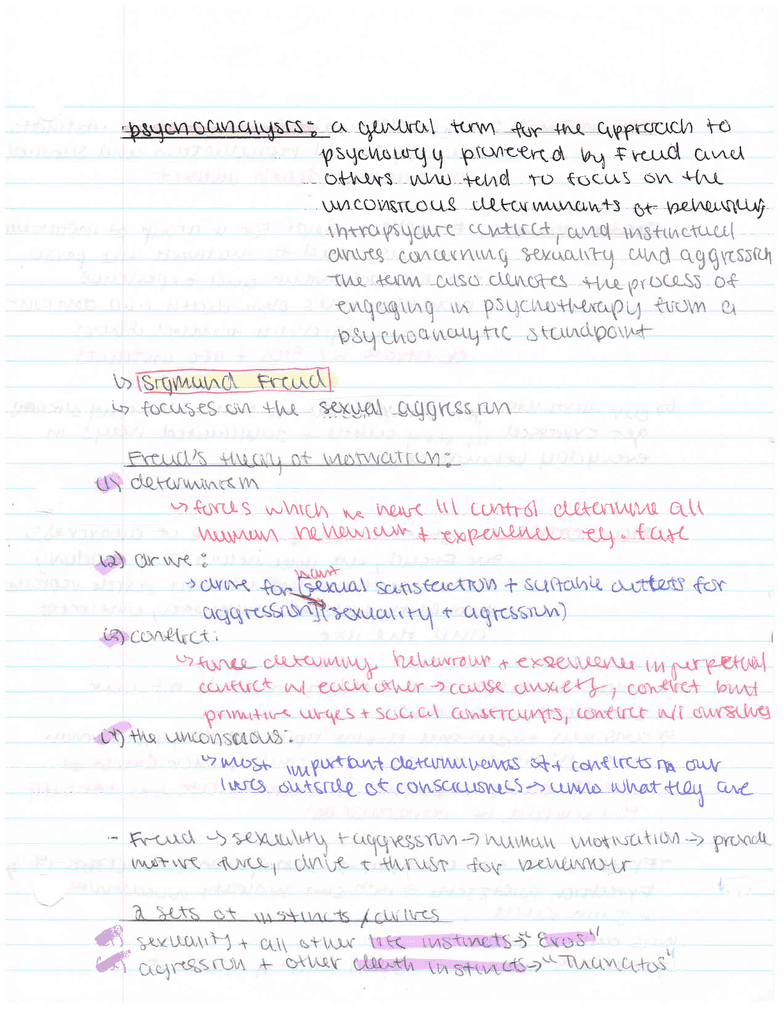 psychoanalysis: a general term for the approach to
psychology pioneered by Freud and
others who tend to focus on the
unconscious determinants of behaviour,
intrapsychic conflict, and instinctual
drives concerning sexuality and aggression
The term also denotes the process of
engaging in psychotherapy from a
psychoanalytic standpoint
↳ Sigmund Freud
↳ focuses on the sexual aggression
Freud's theory of motivation:
(1) determinism
↳ forces which we have lil control determine all
human behaviour + experience eg. fate
(2) drive:
want
→ drive for [sexual satisfaction + suitable outlets for
aggression] (sexuality + agression)
(3) conflict:
↳ force determining behaviour + experience in perpetual
conflict w/ each other → cause anxiety, conflict btwt
primitive urges + social constraints, conflict w/i ourselves
(4) the unconscious:
↳ most important determinents of + conflicts in our
lives outside of consciousness → unno what they are
- Freud ↳ sexuality + aggression → human motivation → provide
motive force, drive + thrust for behaviour
2 sets of instincts/drives
1) sexuality + all other life instincts → "Eros"
2) agression + other death instincts → "Thanatos"